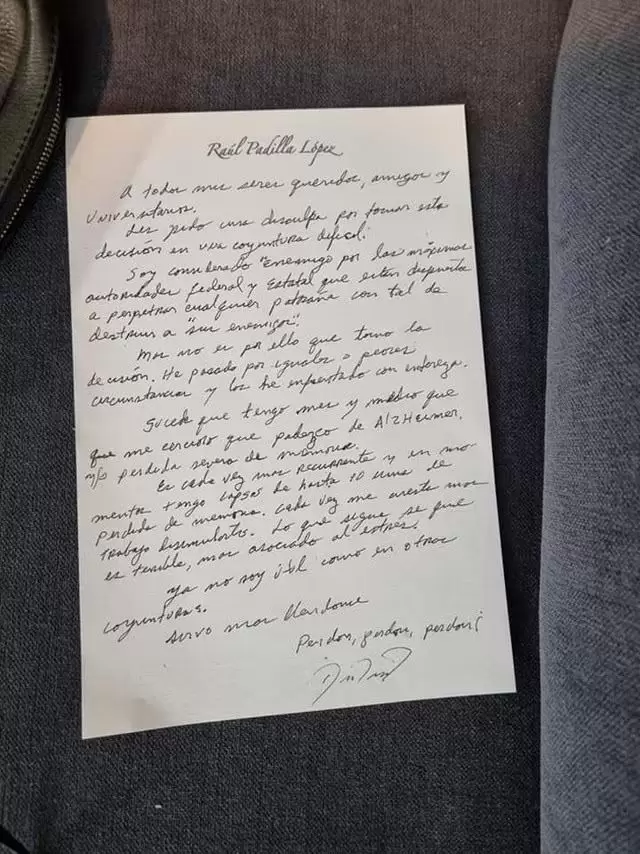 Raúl Padilla López
A todos mis seres queridos, amigos y
Universitarios.
Les pido una disculpa por tomar esta
decisión en una coyuntura difícil.
Soy considerado "Enemigo por las máximas
autoridades federal y Estatal que están dispuestas
a perpetrar cualquier patraña con tal de
destruir a "sus enemigos".
Mas no es por ello que tomo la
decisión. He pasado por iguales o peores
circunstancias y las he enfrentado con entereza.
Sucede que tengo mes y medio que
que me cercioro que padezco de AlzHeimer.
y/o perdida severa de memoria.
Es cada vez mas recurrente y en mo-
mentos tengo lapsos de hasta 10 mins de
perdida de memoria. Cada vez me cuesta mas
trabajo disimularlos. Lo que sigue se que
es terrible, mas asociado al estres.
Ya no soy útil como en otras
coyunturas.
Sirvo mas llendome
Perdon, perdon, perdon!